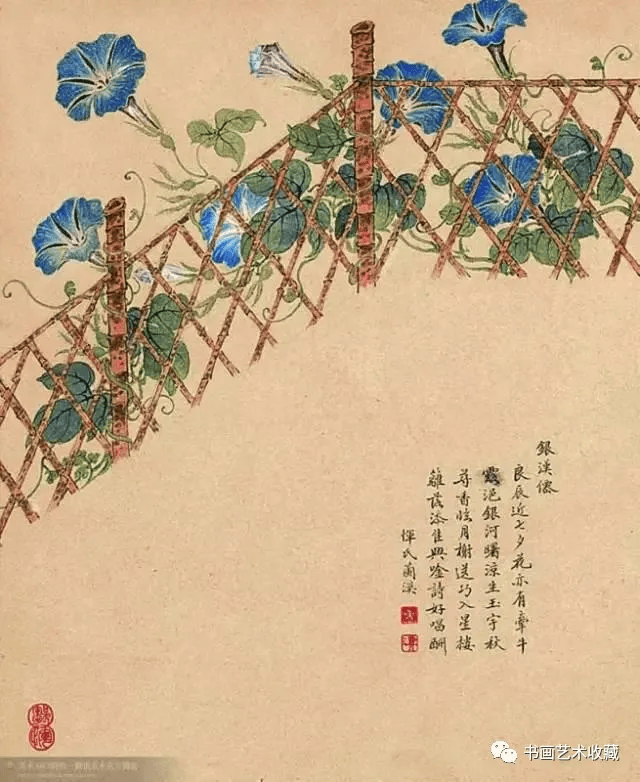 銀漢僊
良辰近七夕花亦有牽牛
露浥銀河曙涼生玉宇秋
尋香月榭送巧入星樓
籬落添佳興唫詩好唱酬
惲氏蘭溪
书画艺术收藏